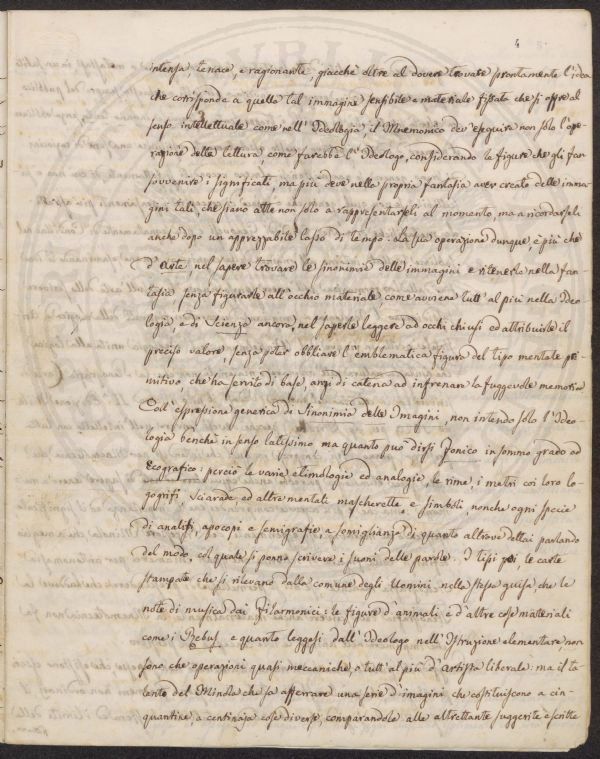 4
intensa, tenace, e ragionante, giacchè oltre al dovere trovare prontamente l'idea
che corrisponde a quella tal immagine sensibile e materiale fissata che si offre al
senso intellettuale come nell'Ideologia, il Mnemonico dev'eseguire non solo l'ope-
razione della lettura come farebbe l'Ideologo, considerando le figure che gli fan
sovvenire i significati, ma più deve nella propria fantasia aver creato delle imma-
gini tali, che siano atte non solo a rappresentarseli al momento, ma a ricordarseli
anche dopo un apprezzabile lasso di tempo. La sua operazione dunque, è più che
d'arte, nel sapere trovare le sinonimie delle immagini e ritenerle nella fan-
tasia senza figurarsele all'occhio materiale come avviene tutt'al più nella Ideo-
logia, e di Scienza ancora, nel saperle leggere ad occhi chiusi ed attribuirle il
preciso valore, senza poter obbliare l'emblematica figura del tipo mentale pri-
mitivo che ha servito di base, anzi di catena ad infrenare la fuggevole memoria
Coll'espressione generica di Sinonimia delle Imagini, non intendo solo l'Ideo-
logia benchè in senso latissimo ma quanto può dirsi Fonico in sommo grado ed
Ecografico: perciò le varie etimologie ed analogie, le rime, i metri coi loro lo-
gogrifi, Sciarade ed altre mentali mascherette, e simboli nonchè ogni specie
di analisi, apocopi e semigrafie, a somiglianza di quanto altrove dettai parlando
del modo, col quale si ponno scrivere i suoni delle parole. I tipi poi le carte
stampate che si rilevano dalla comune degli Uomini nella stessa guisa, che le
note di musica dai Filarmonici: le figure d'animali e d'altre cose materiali
come i Rebus e quanto leggesi dall'Ideologo nell'Istruzione elementare, non
sono che operazioni quasi meccaniche, o tutt'al più d'artista liberale: ma il ta-
lento del che sa afferrare una serie d'imagini che costituiscono a cin-
quantine, a centinaja cose diverse, comparandole alle altrettante suggerite e scritte